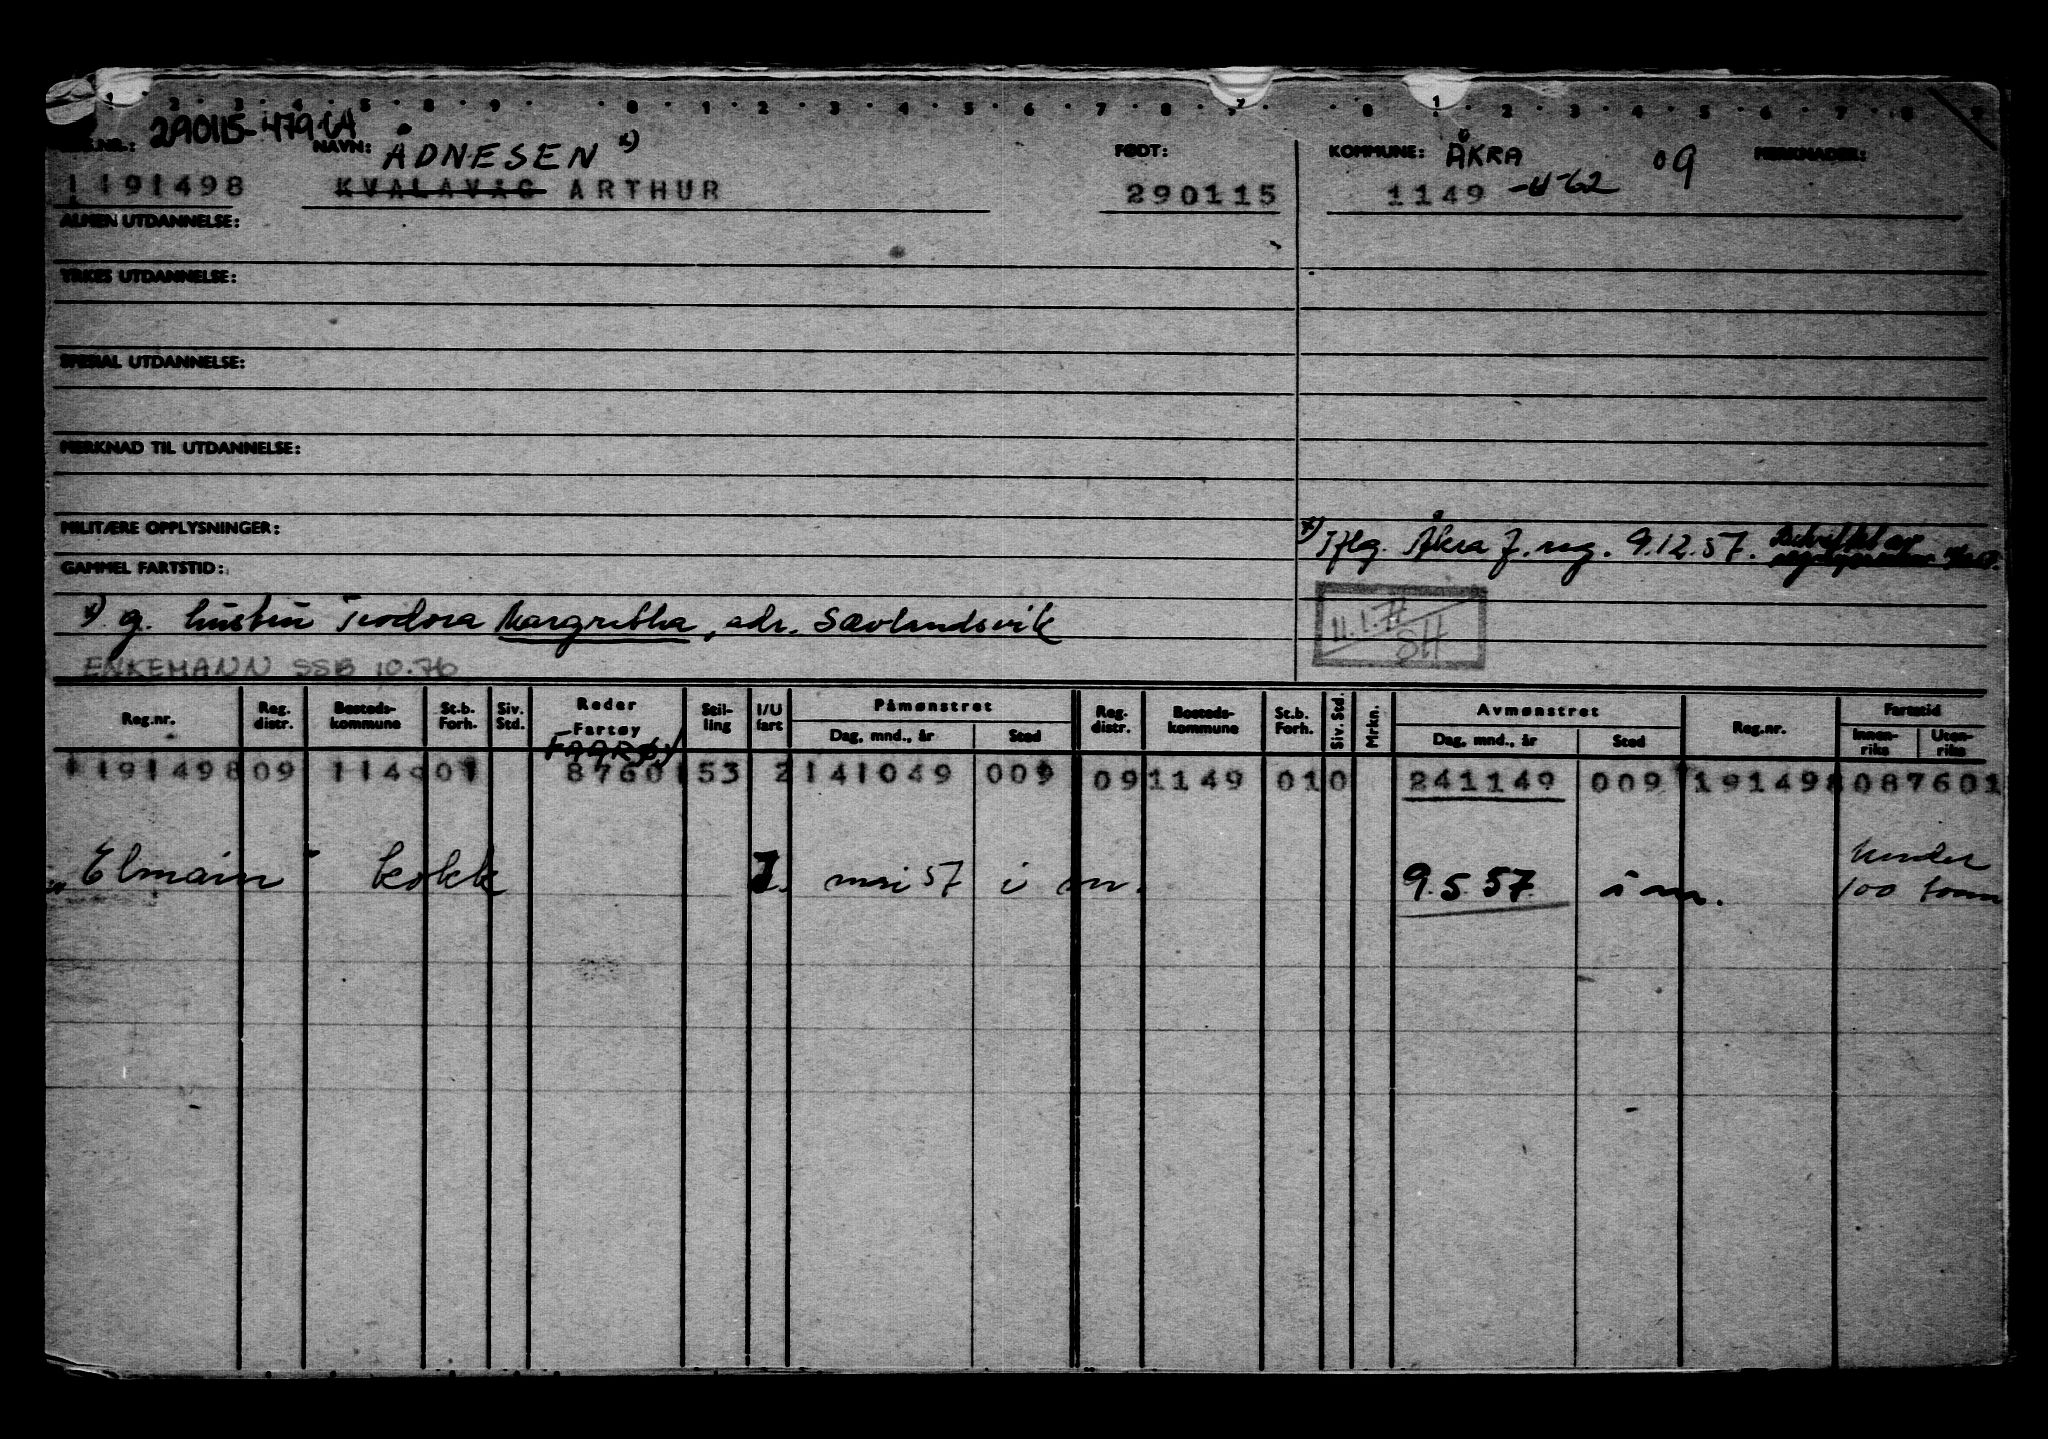 290115-479 64
NAVN: ÅDNESEN x) FØDT: KOMMUNE: ÅKRA 09 MERKNADER:
1191498 KVALAVÅG ARTHUR 290115 1149 -4-62
ALMEN UTDANNELSE:
YRKES UTDANNELSE:
SPESIAL UTDANNELSE:
MERKNAD TIL UTDANNELSE:
MILITÆRE OPPLYSNINGER:
x) Iflg. Åkra f. reg. 9.12.57.
GAMMEL FARTSTID:
x) g. hustru Teodora Margretha, adr. Sævlandsvik
11.1.71
ENKEMANN SSB 10.76
Reg.nr. Reg. distr. Bosteds-kommune St.b. Forh. Siv. Std. Reder Fartøy Stil-ling I/U fart Påmønstret Dag, mnd., år Sted Reg. distr. Bosteds-kommune St.b. Forh. Siv. Std. Mrkn. Avmønstret Dag, mnd., år Sted Reg.nr. Fartstid Innen-riks Uten-riks
FAARØY
1191498 09 1149 01 87601 53 2 141049 009 09 1149 01 0 241149 009 1191498 087601
"Elmarin" kokk mai 57 i m. 9.5.57. å m. under
100 tonn